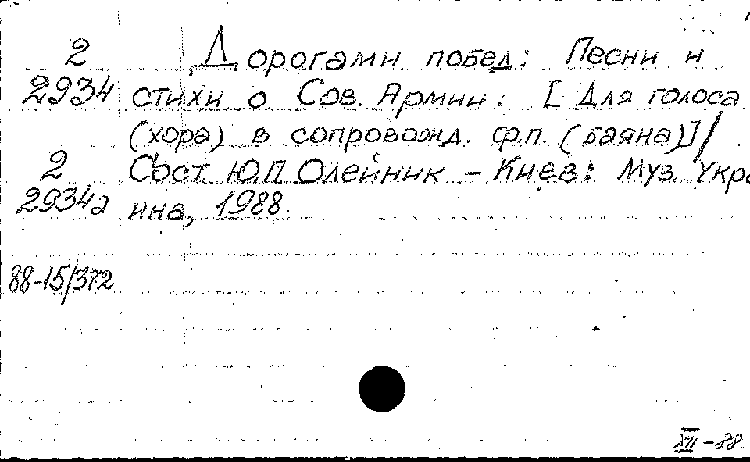 2 Дорогами побед: Песни и
2934 стихи о Сов. Армии: [Для голоса
(хора) в сопровожд. ф.п. (баяна)]/
2 Сост. Ю.П. Олейник - Киев: Муз. Укра
2934а ина, 1988.
88-15/372
XII-88